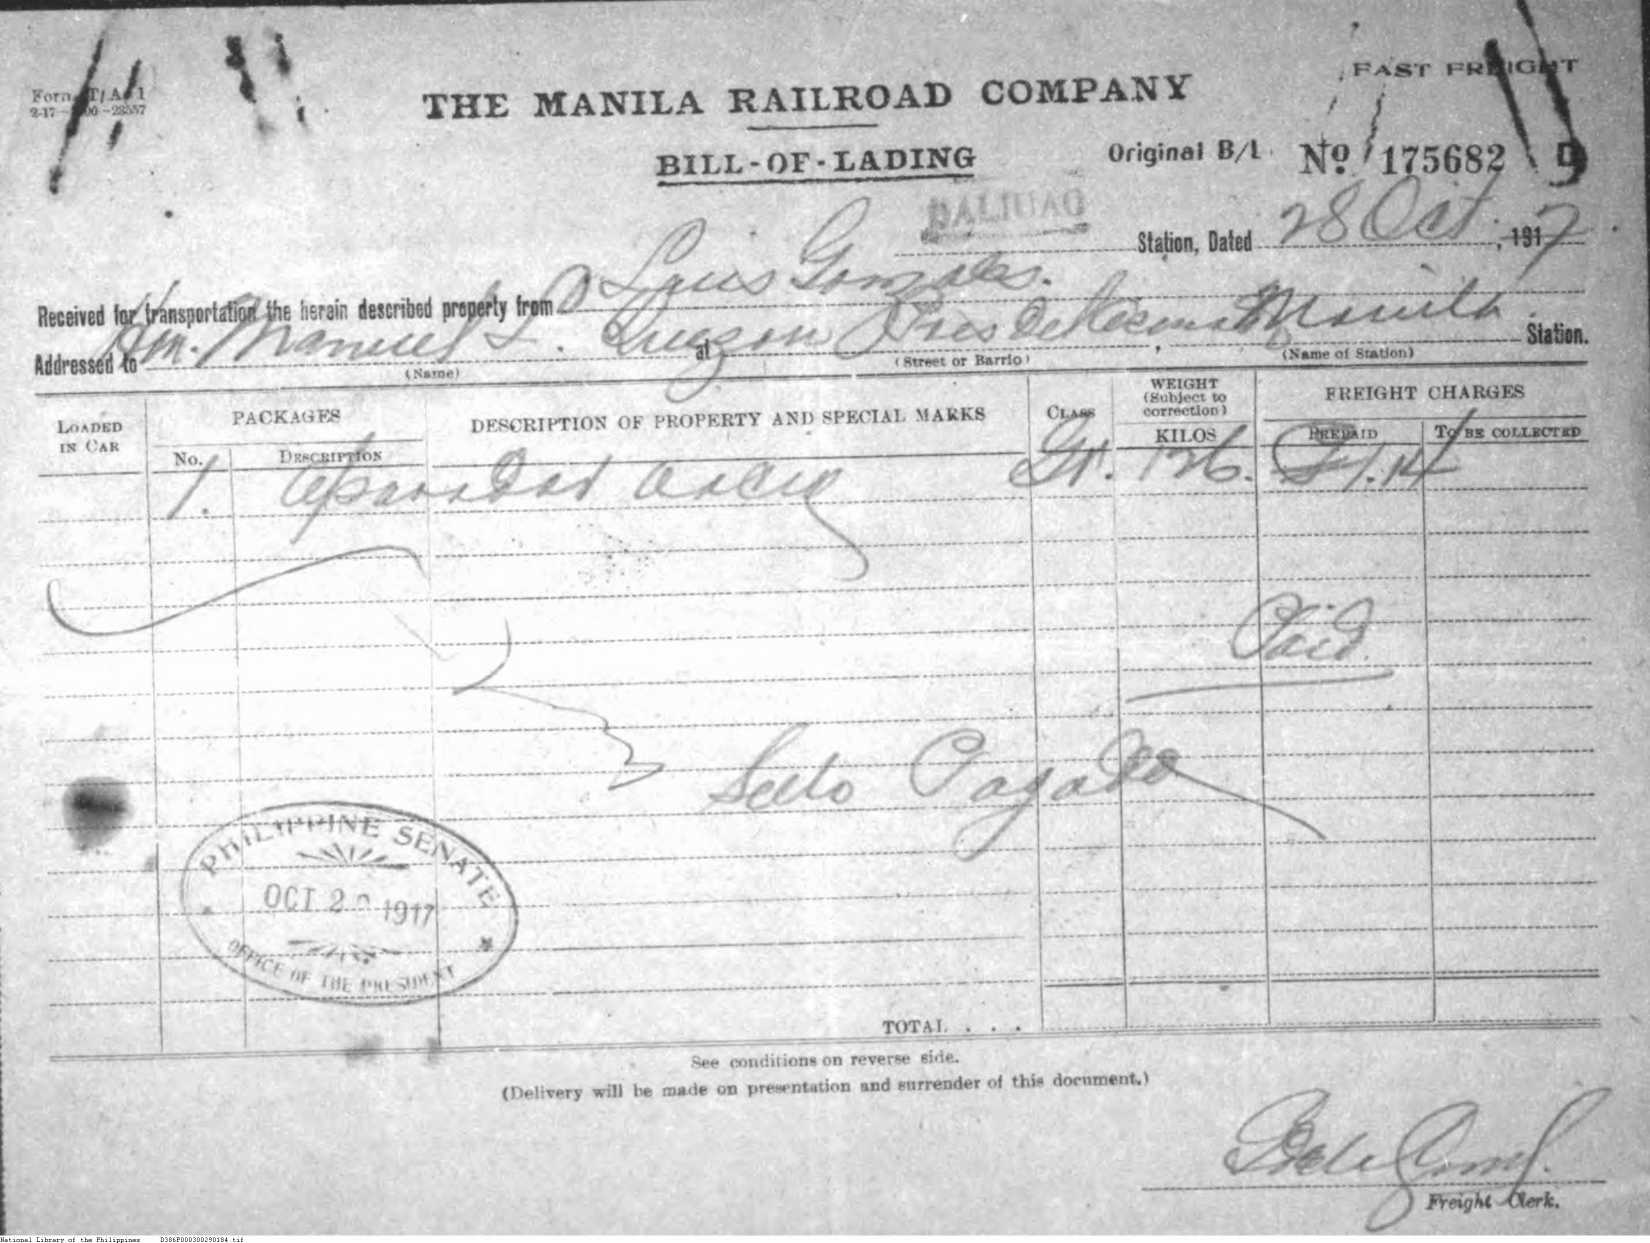 FAST FREIGHT
Form T/A 1
2-17
THE MANILA RAILROAD COMPANY
BILL-OF-LADING
Original B/L No 175682 D
BALIUAG Station, Dated 28 Oct., 1917
Received for transportation the herein described property from Luis Gonzales.
Addressed to Hon. Manuel L. Quezon at Manila Station.
(Name) (Street or Barrio) (Name of Station)
LOADED IN CAR
PACKAGES
No. DESCRIPTION
DESCRIPTION OF PROPERTY AND SPECIAL MARKS
CLASS
WEIGHT (Subject to correction)
KILOS
FREIGHT CHARGES
PREPAID TO BE COLLECTED
1. Aparador 126. 1.14
Paid
Sello Pagado
PHILIPPINE SENATE
OCT 2 1917
OFFICE OF THE PRESIDENT
TOTAL . . .
See conditions on reverse side.
(Delivery will be made on presentation and surrender of this document.)
Freight Clerk.
National Library of the Philippines D386P000300290184.tif